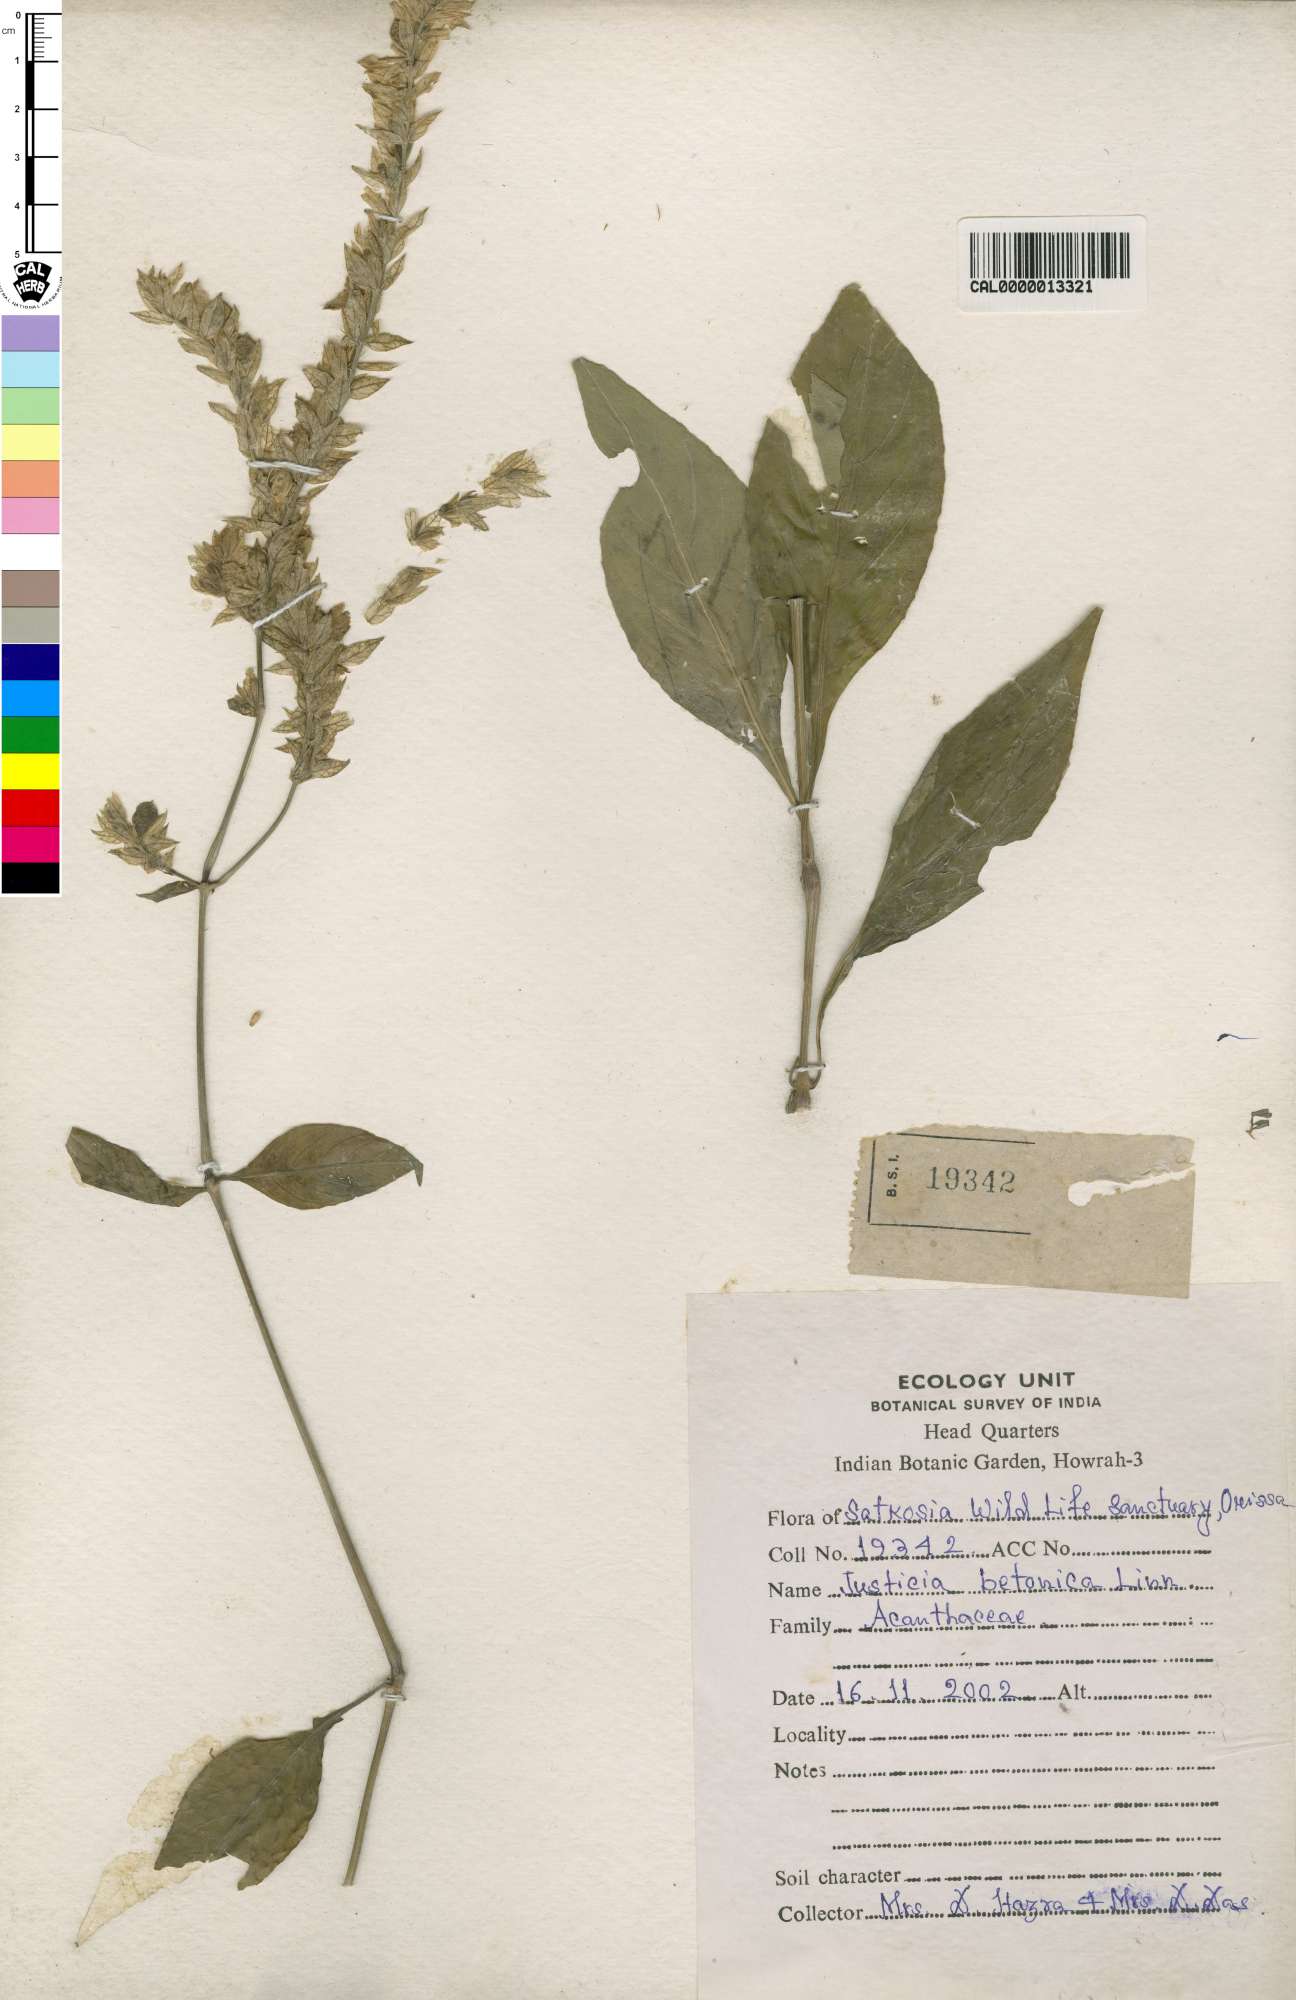 0
cm
1
2
3
4
5
CAL
HERB
CENTRAL NATIONAL HERBARIUM
CAL0000013321
B. S. I.
19342
ECOLOGY UNIT
BOTANICAL SURVEY OF INDIA
Head Quarters
Indian Botanic Garden, Howrah-3
Flora of Satkosia Wild Life Sanctuary, Orissa
Coll No. 19342 ACC No.
Name Justicia betonica Linn.
Family Acanthaceae
Date 16.11.2002 Alt.
Locality
Notes
Soil character
Collector Mrs. D. Hazra & Mrs. D. Das.